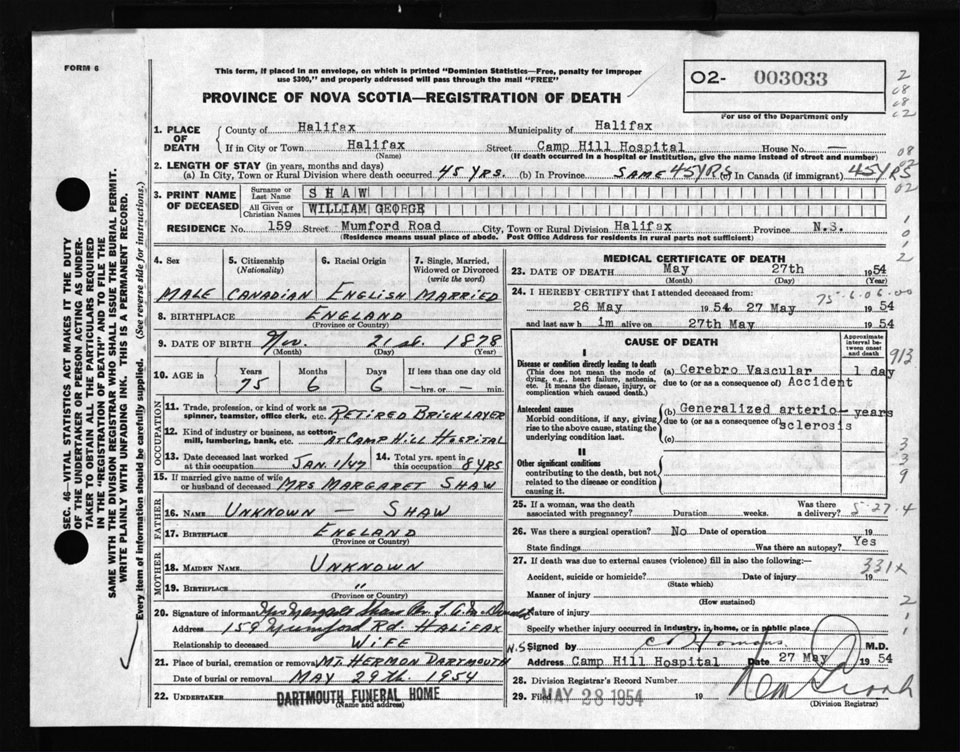 FORM 6
This form, if placed in an envelope, on which is printed "Dominion Statistics—Free, penalty for improper
use $300," and properly addressed will pass through the mail "FREE"
PROVINCE OF NOVA SCOTIA—REGISTRATION OF DEATH
O2- 003033
For use of the Department only
2
08
08
02
1. PLACE OF DEATH
County of Halifax Municipality of Halifax
If in City or Town Halifax Street Camp Hill Hospital House No. —
(Name) (If death occurred in a hospital or institution, give the name instead of street and number)
08
02
02
2. LENGTH OF STAY (in years, months and days)
(a) In City, Town or Rural Division where death occurred. 45 YRS. (b) In Province SAME 45 YRS (c) In Canada (if immigrant) 45 YRS
3. PRINT NAME OF DECEASED
Surname or Last Name SHAW
All Given or Christian Names WILLIAM GEORGE
RESIDENCE No. 159 Street Mumford Road City, Town or Rural Division Halifax Province N.S.
(Residence means usual place of abode. Post Office Address for residents in rural parts not sufficient)
1
0
1
2
SEC. 46—VITAL STATISTICS ACT MAKES IT THE DUTY
OF THE UNDERTAKER OR PERSON ACTING AS UNDER-
TAKER TO OBTAIN ALL THE PARTICULARS REQUIRED
IN THE "REGISTRATION OF DEATH" AND TO FILE THE
SAME WITH THE DIVISION REGISTRAR WHO SHALL ISSUE THE BURIAL PERMIT.
WRITE PLAINLY WITH UNFADING INK. THIS IS A PERMANENT RECORD.
Every item of information should be carefully supplied. (See reverse side for instructions.)
4. Sex 5. Citizenship (Nationality) 6. Racial Origin 7. Single, Married, Widowed or Divorced (write the word)
MALE CANADIAN ENGLISH MARRIED
8. BIRTHPLACE ENGLAND
(Province or Country)
9. DATE OF BIRTH Nov. 21st. 1878
(Month) (Day) (Year)
10. AGE in Years Months Days If less than one day old
75 6 6 —hrs. or — min.
OCCUPATION
11. Trade, profession, or kind of work as spinner, teamster, office clerk, etc. RETIRED BRICKLAYER
12. Kind of industry or business, as cotton-mill, lumbering, bank, etc. AT CAMP HILL HOSPITAL
13. Date deceased last worked at this occupation JAN. 1/47 14. Total yrs. spent in this occupation 8 YRS
15. If married give name of wife or husband of deceased MRS MARGARET SHAW
FATHER
16. NAME UNKNOWN — SHAW
17. BIRTHPLACE ENGLAND
(Province or Country)
MOTHER
18. MAIDEN NAME UNKNOWN
19. BIRTHPLACE "
(Province or Country)
20. Signature of informant Mrs Margaret Shaw
Address 159 Mumford Rd. HALIFAX
Relationship to deceased WIFE
21. Place of burial, cremation or removal MT. HERMON DARTMOUTH N.S.
Date of burial or removal MAY 29th. 1954
22. UNDERTAKER DARTMOUTH FUNERAL HOME
(Name and address)
MEDICAL CERTIFICATE OF DEATH
23. DATE OF DEATH May 27th 1954
(Month) (Day) (Year)
24. I HEREBY CERTIFY that I attended deceased from: 75-6-06-00
26 May 1954 to 27 May 1954
and last saw him alive on 27th May 1954
CAUSE OF DEATH
Approximate interval between onset and death
I
Disease or condition directly leading to death
(This does not mean the mode of dying, e.g., heart failure, asthenia, etc. It means the disease, injury, or complication which caused death.)
(a) Cerebro Vascular 1 day
due to (or as a consequence of) Accident
913
Antecedent causes
Morbid conditions, if any, giving rise to the above cause, stating the underlying condition last.
(b) Generalized arterio- years
due to (or as a consequence of) sclerosis
(c)
II
Other significant conditions
contributing to the death, but not related to the disease or condition causing it.
3
3
9
25. If a woman, was the death associated with pregnancy? Duration weeks. Was there a delivery? 5-27-4
26. Was there a surgical operation? No Date of operation 19
State findings Was there an autopsy? Yes
27. If death was due to external causes (violence) fill in also the following:— 331x
Accident, suicide or homicide? Date of injury 19
(State which)
Manner of injury
(How sustained)
Nature of injury
Specify whether injury occurred in industry, in home, or in public place
2
1
1
Signed by M.D.
Address Camp Hill Hospital Date 27 May 1954
28. Division Registrar's Record Number
29. Filed MAY 28 1954 19
(Division Registrar)